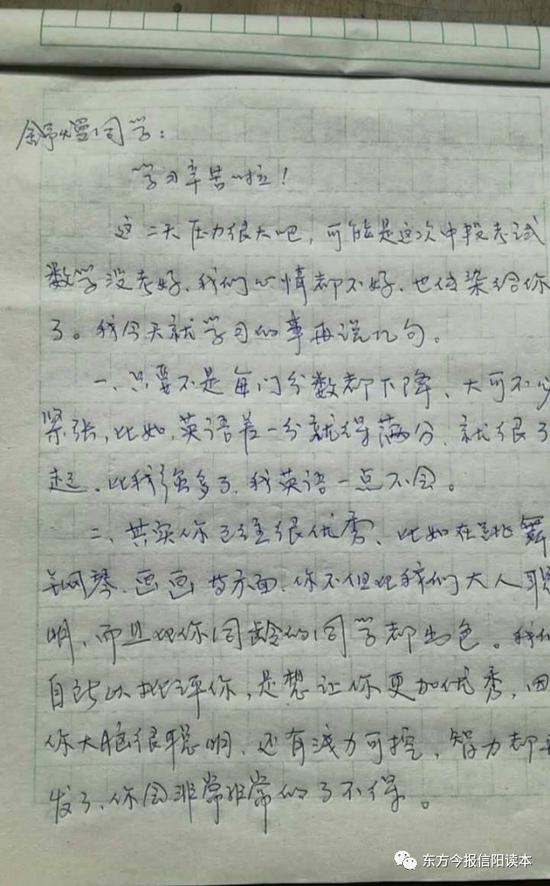 舒熠同学：
学习辛苦啦！
这二天压力很大吧，可能是这次中段考试
数学没考好，我们心情都不好，也传染给你
了。我今天就学习的事再说几句。
一、只要不是每门分数都下降，大可不必
紧张，比如，英语差一分就得满分，就很了
起，比我强多了，我英语一点不会。
二、其实你已经很优秀，比如在跳舞
钢琴、画画等方面，你不但比我们大人聪
明，而且比你同龄的同学都出色。我们
自所以批评你，是想让你更加优秀，因
你大脑很聪明，还有潜力可挖，智力都开
发了，你会非常非常的了不得。
东方今报信阳读本